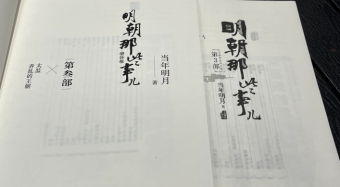 明朝那些事儿
增补版
当年明月
著
第叁部
太监
弄乱的王朝
明朝那些事儿
第3部
当年明月